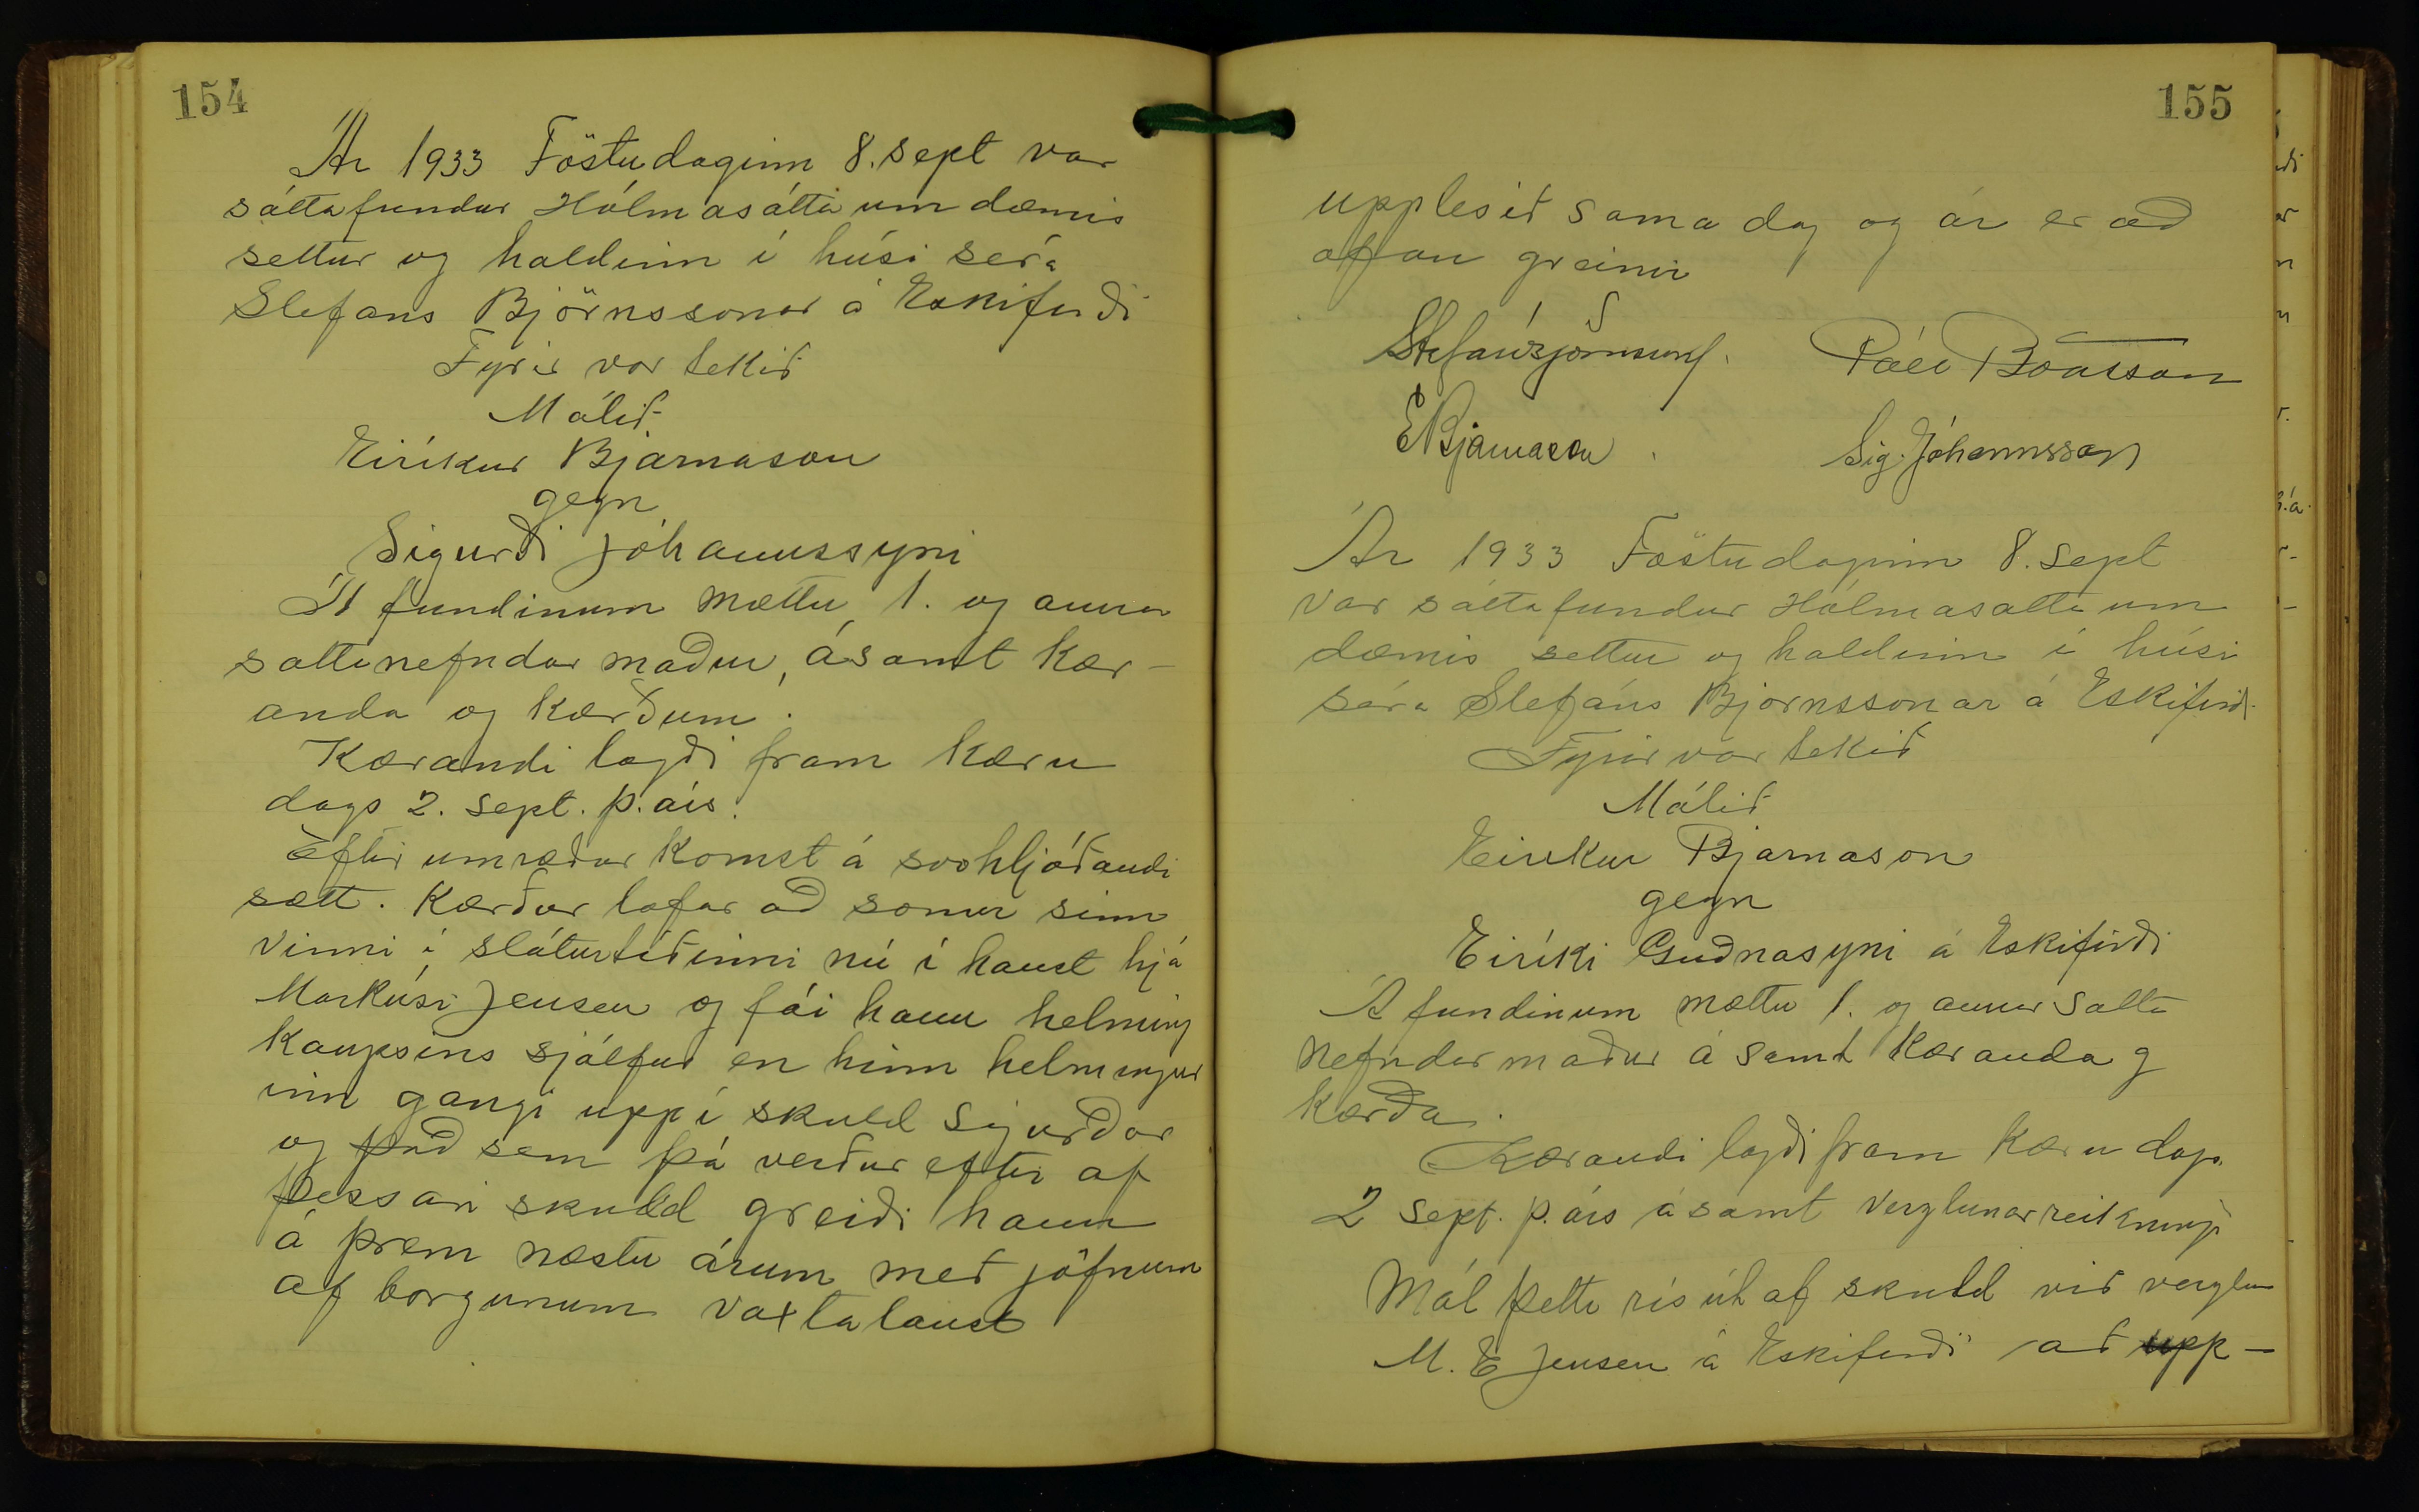 154
Ár 1933 Föstudaginn 8. sept var
sáttafundur Hólmasátta um dæmis
settur og haldinn í húsi séra
Stefans Björnssonar á Eskifirði
Fyrir var tekið
Málið
Eiríkur Bjarnason
gegn
Sigurði Jóhannssyni
Á fundinum mættu 1. og annar
sattanefndar maður, ásamt kær-
anda og kærðum.
Kærandi lagði fram kæru
dags 2. sept. þ. árs.
Eftir umræður komst á svohljóðandi
sætt. Kærður lofar að sonur sinn
vinni í sláturtíðinni nú í haust hjá
Markúsi Jensen og fái hann helming
kaupsins sjálfur en hinn helmingur
inn gangi uppí skuld Sigurðar
og það sem þá verður eftir af
þessari skuld greiði hann
á þrem næstu árum með jöfnum
af borgunum vaxtalaust
155
upplesið sama dag og ár er að
ofan greinir
Stefán Björnsson. Páll Bóasson
EBjarnason. Sig. Jóhannsson
Ár 1933 Föstudaginn 8. sept
var sáttafundur Hólmasatta um
dæmis settur og haldinn í húsi
séra Stefáns Bjornssonar á Eskifirði
Fyrir var tekið
Málið
Eirikur Bjarnason
gegn
Eiríki Guðnasyni á Eskifirði
Á fundinum mættu 1. og annar satta
nefndar maður á samt kæranda og
kærða.
Kærandi lagði fram kæru dags.
2 sept. þ. árs ásamt verzlunarreikningi
Mál þetta rís út af skuld við verzlun
M. E Jensen á Eskifirði að upp-